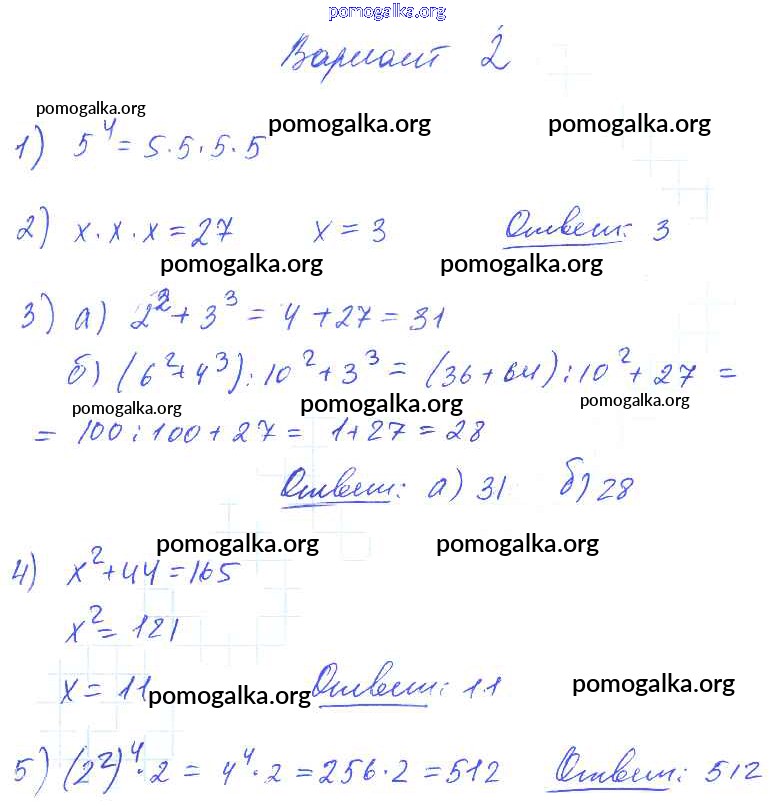 pomogalka.org
Вариант 2
pomogalka.org
pomogalka.org pomogalka.org
1) 5⁴ = 5·5·5·5
2) x·x·x = 27 x = 3 Ответ: 3
pomogalka.org pomogalka.org
3) а) 2² + 3³ = 4 + 27 = 31
б) (6² + 4³) : 10² + 3³ = (36 + 64) : 10² + 27 =
pomogalka.org pomogalka.org pomogalka.org
= 100 : 100 + 27 = 1 + 27 = 28
Ответ: а) 31 б) 28
pomogalka.org pomogalka.org
4) x² + 44 = 165
x² = 121
x = 11 Ответ: 11
pomogalka.org pomogalka.org
5) (2²)⁴ · 2 = 4⁴ · 2 = 256 · 2 = 512 Ответ: 512